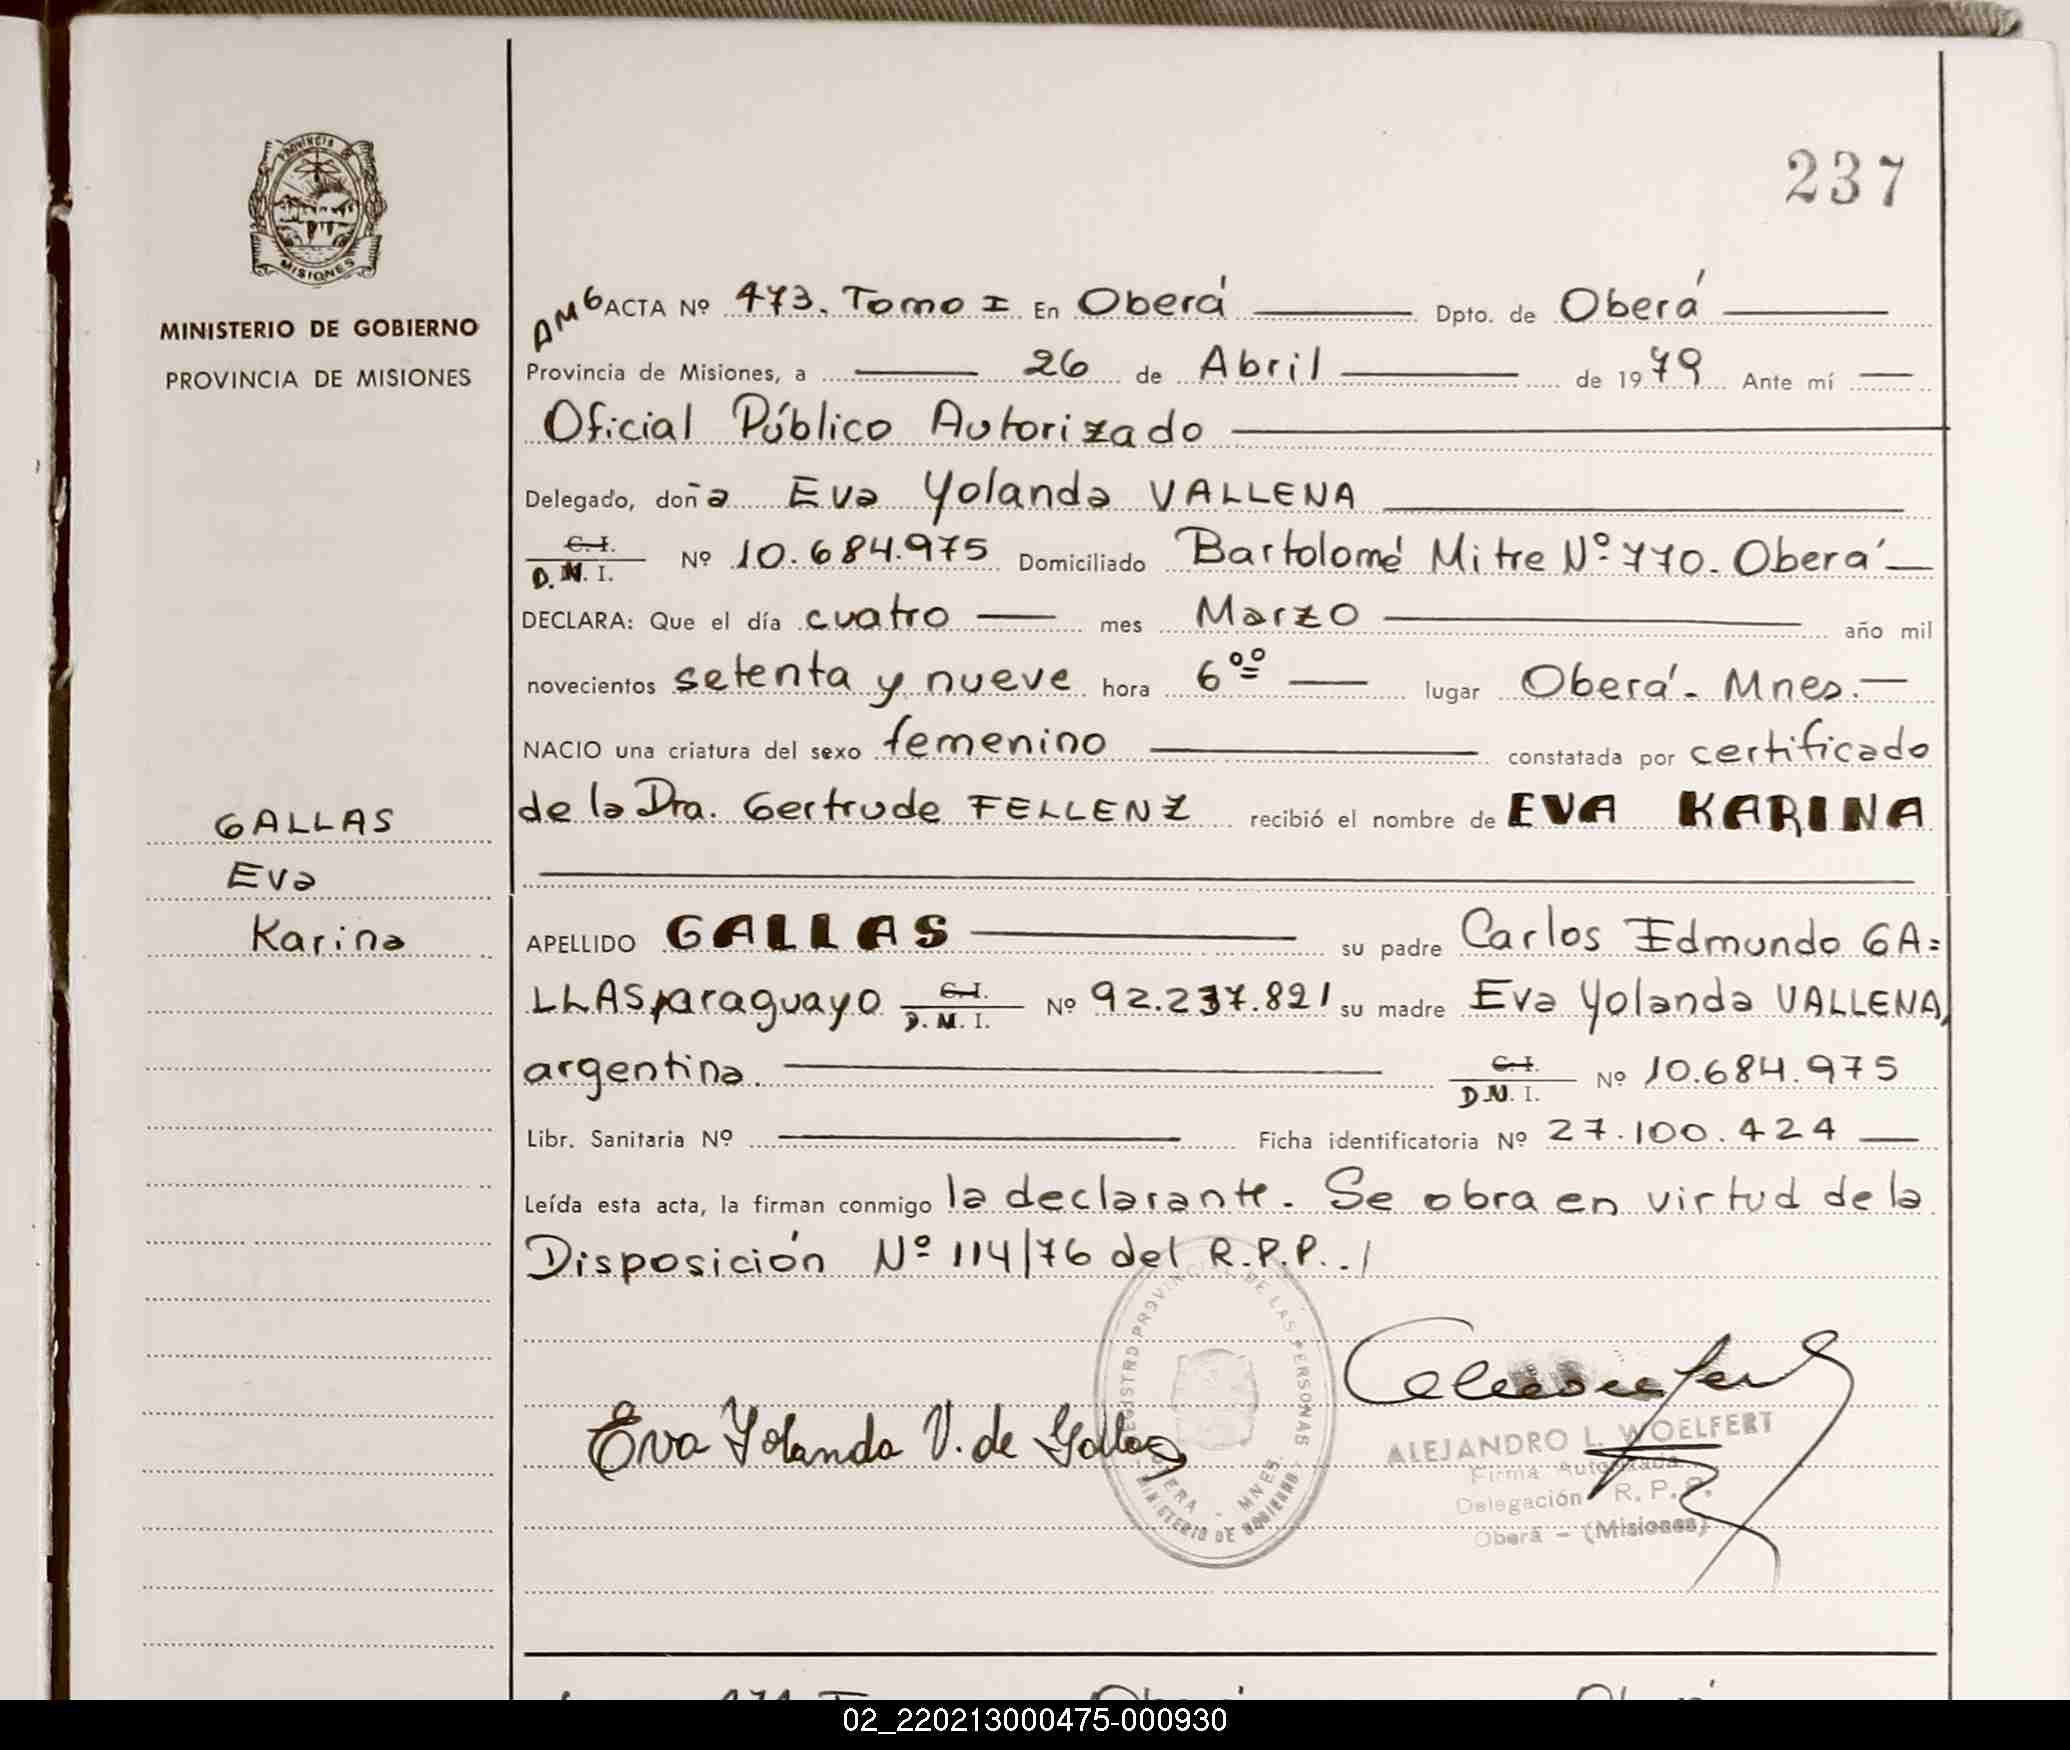 237
PROVINCIA DE
MISIONES
MINISTERIO DE GOBIERNO
PROVINCIA DE MISIONES
AMG ACTA Nº 473. Tomo I En Oberá Dpto. de Oberá
Provincia de Misiones, a 26 de Abril de 1979 Ante mí
Oficial Público Autorizado
Delegado, doña Eva Yolanda VALLENA
C.I.
D.N.I. Nº 10.684.975 Domiciliado Bartolomé Mitre Nº 770. Oberá
DECLARA: Que el día cuatro mes Marzo año mil
novecientos setenta y nueve hora 6ºº lugar Oberá - Mnes.
NACIO una criatura del sexo femenino constatada por certificado
de la Dra. Gertrude FELLENZ recibió el nombre de EVA KARINA
GALLAS
Eva
Karina
APELLIDO GALLAS su padre Carlos Edmundo GA=
LLAS, paraguayo C.I. D.N.I. Nº 92.237.821 su madre Eva Yolanda VALLENA,
argentina. C.I. D.N.I. Nº 10.684.975
Libr. Sanitaria Nº Ficha identificatoria Nº 27.100.424
Leída esta acta, la firman conmigo la declarante. Se obra en virtud de la
Disposición Nº 114/76 del R.P.P..
Eva Yolanda V. de Gallas
REGISTRO PROVINCIAL DE LAS PERSONAS
OBERA - MNES
MINISTERIO DE GOBIERNO
ALEJANDRO L. WOELFERT
Firma Autorizada
Delegación R. P. P.
Oberá - (Misiones)
02_220213000475-000930